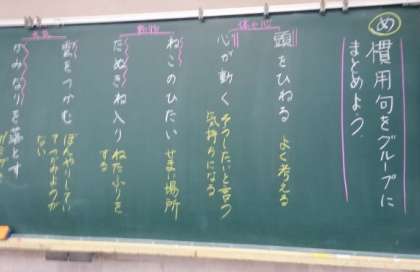 め
慣用句をグループに
まとめよう。
体や心
頭をひねる よく考える
心が動く そうしたいと言う
気持ちになる
動物
ねこのひたい せまい場所
たぬきね入り ねたふりを
する
天気
雲をつかむ ぼんやりしてい
てつかみようが
ない
かみなりを落とす